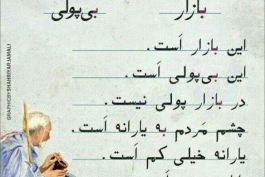 بازار بی‌پولی
این بازار اَست.
این بی‌پولی اَست.
در بازار پولی نیست.
چشم مَردم به یارانه اَست.
یارانه خیلی کم اَست.
GRAPHIC BY SHAHRYAR JAMALI